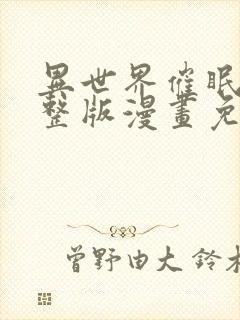 異世界催眠
整版漫畫免
曾野由大 鈴木